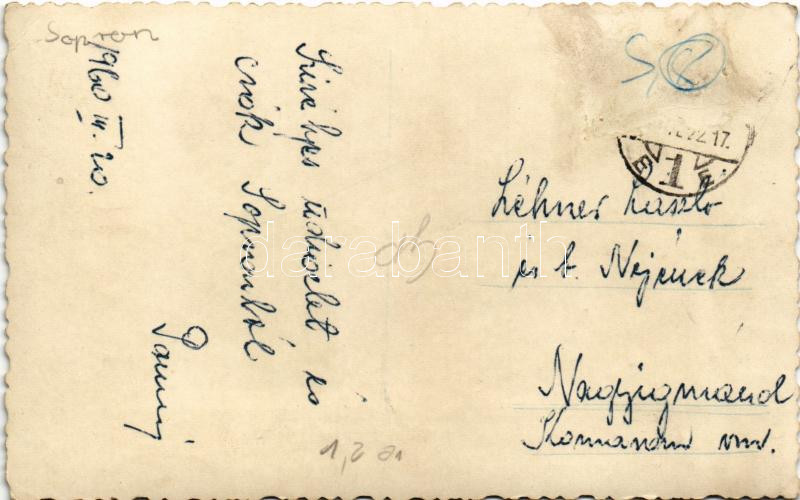 Sopron
1960 III. 20.
Szívélyes üdvözlet és
csók Sopronból
Panni
S,
1.22.17.
1
Léhner László
és b. Nejének
Nagyigmánd
Komárom vm.
darabanth
1,2